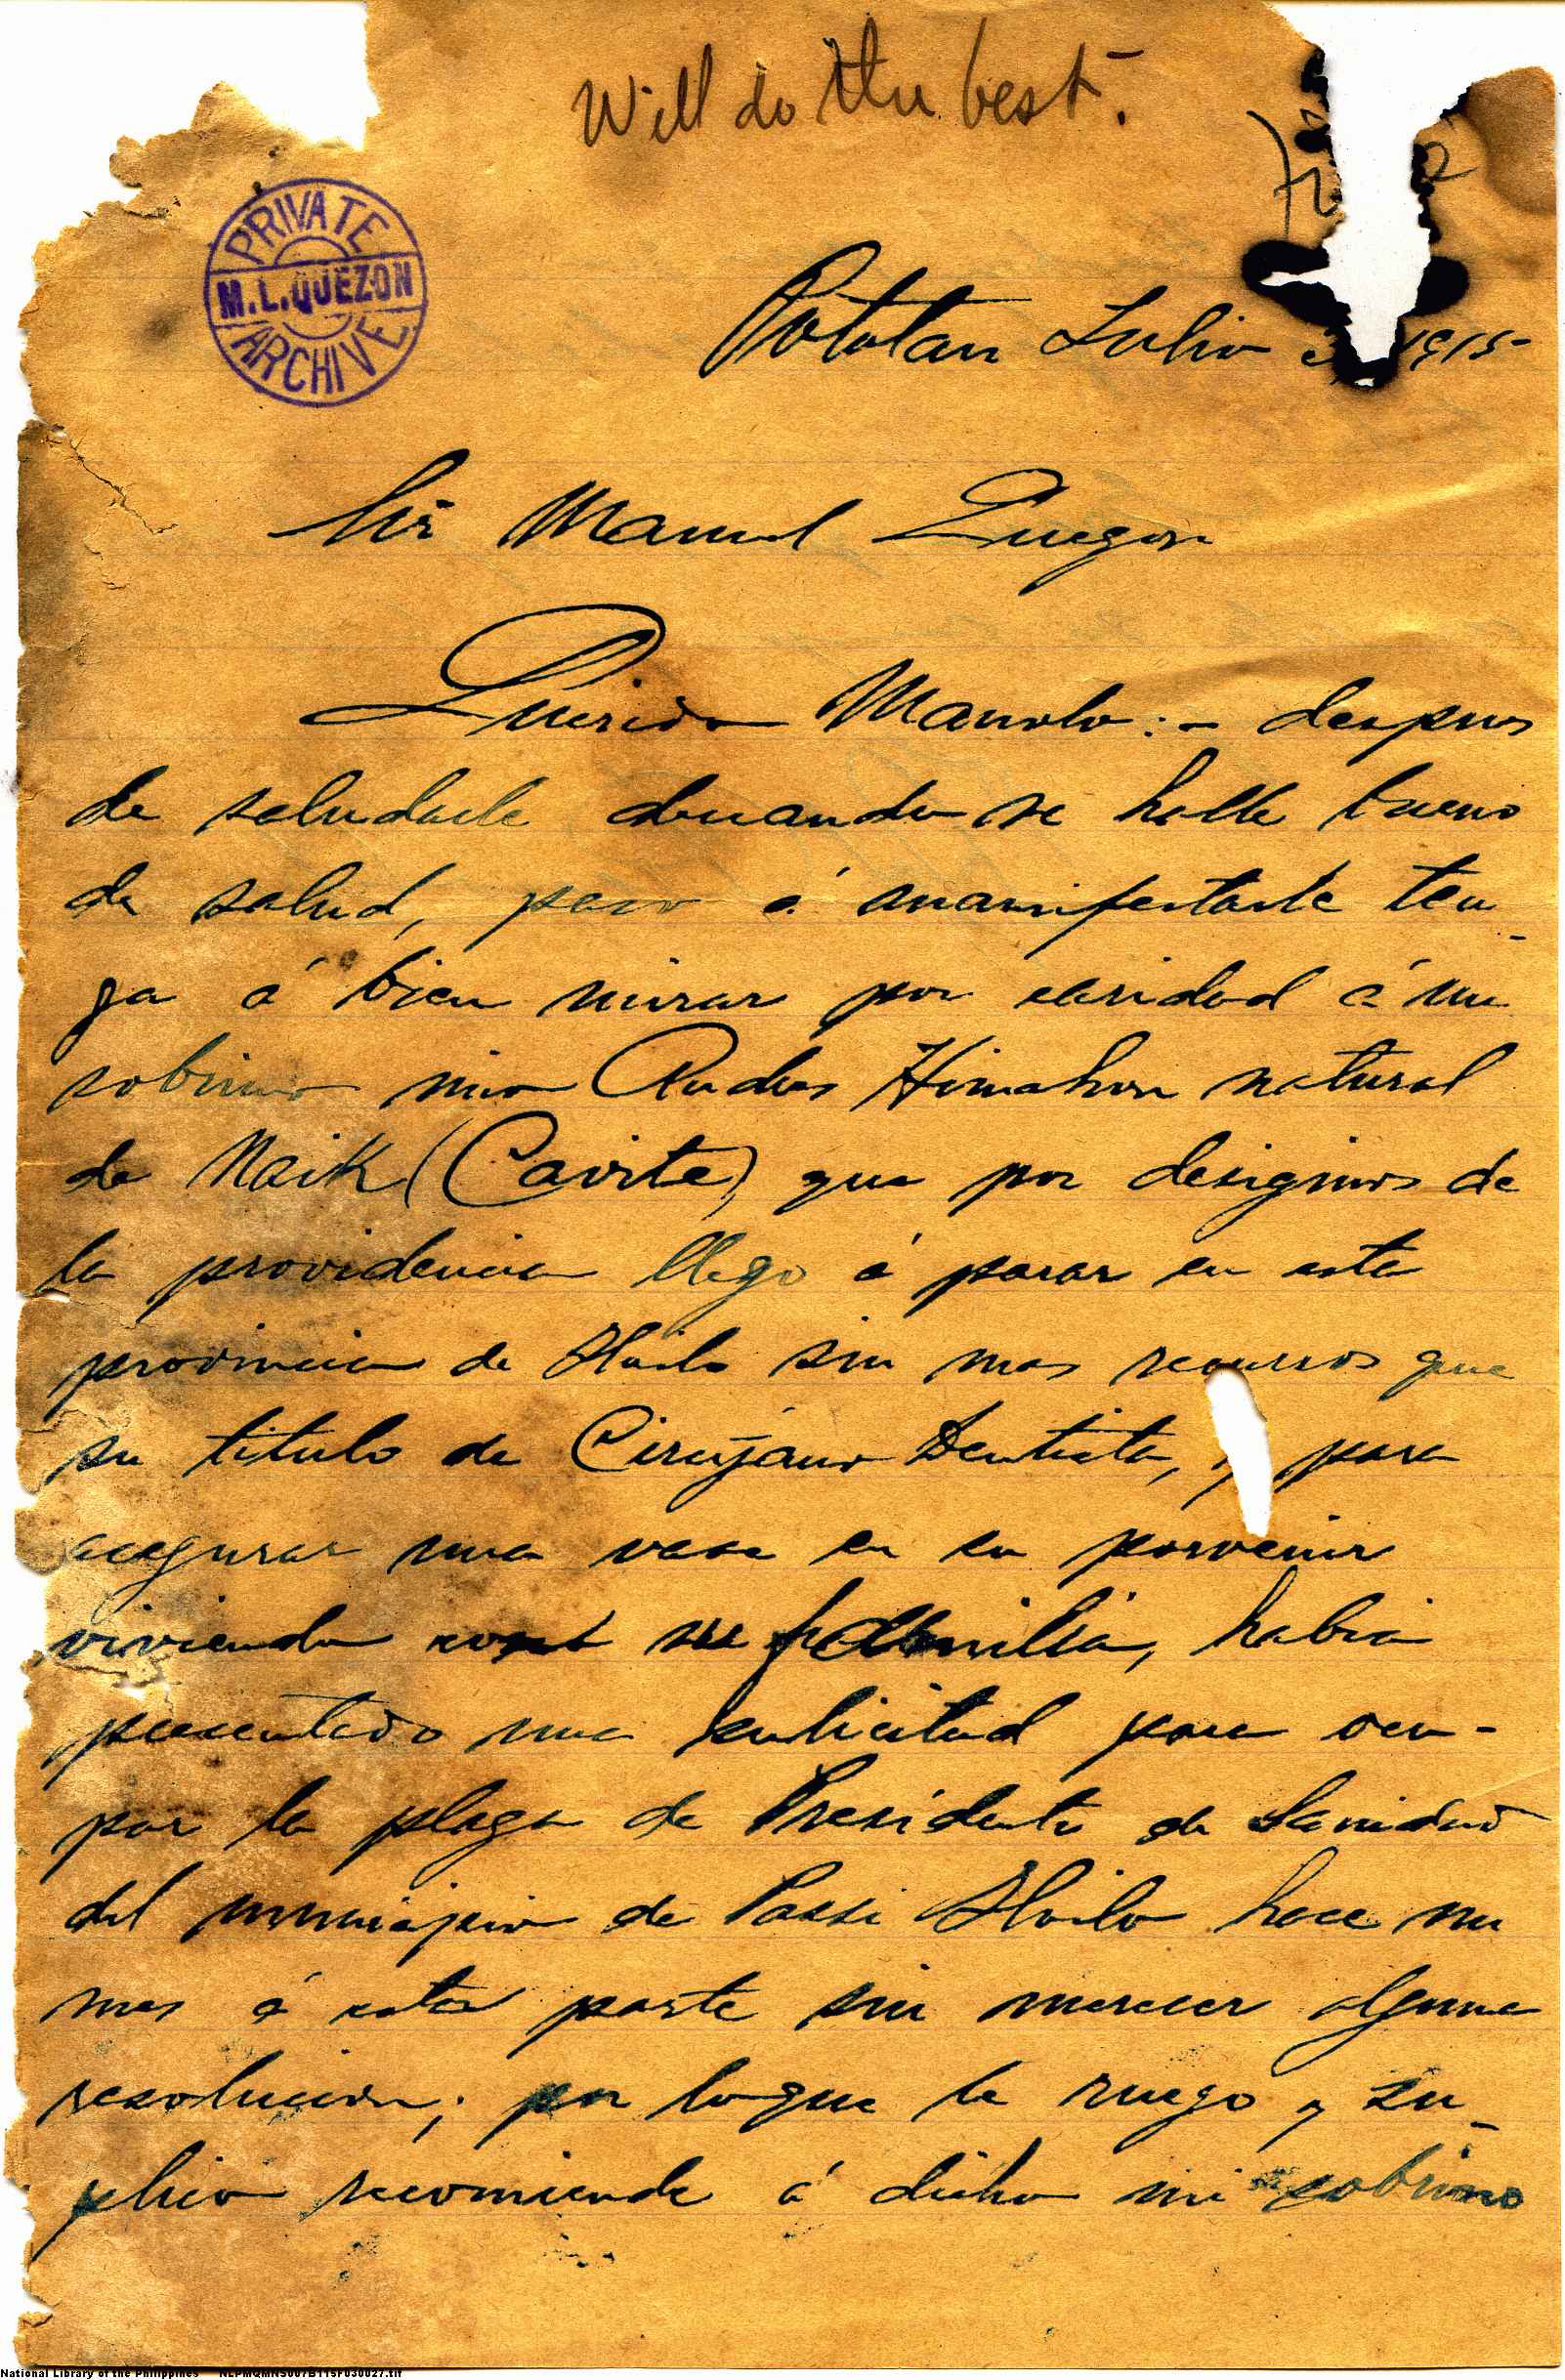 Will do the best.
PRIVATE
M.L.QUEZON
ARCHIVE
Pototan Julio 3, 1915-
Sr. Manuel Quezon
Querido Manolo:- despues
de saludarle deseando se halle bueno
de salud, paso á manifestarle ten-
ga á bien mirar por caridad á un
sobrino mio Andres natural
de Naik (Cavite) que por designios de
la providencia llego á parar en esta
provincia de Iloilo sin mas recursos que
su titulo de Cirujano Dentista, y para
asegurar una vase en su porvenir
viviendo con su familia, habia
presentado una solicitud para ocu-
par la plaza de Presidente de Sanidad
del municipio de Passi Iloilo hace un
mes á esta parte sin merecer alguna
resolucion; por lo que le ruego y su-
plico recomiende á dicho mi sobrino
National Library of the Philippines NLPMQMNS007B115F030027.tif